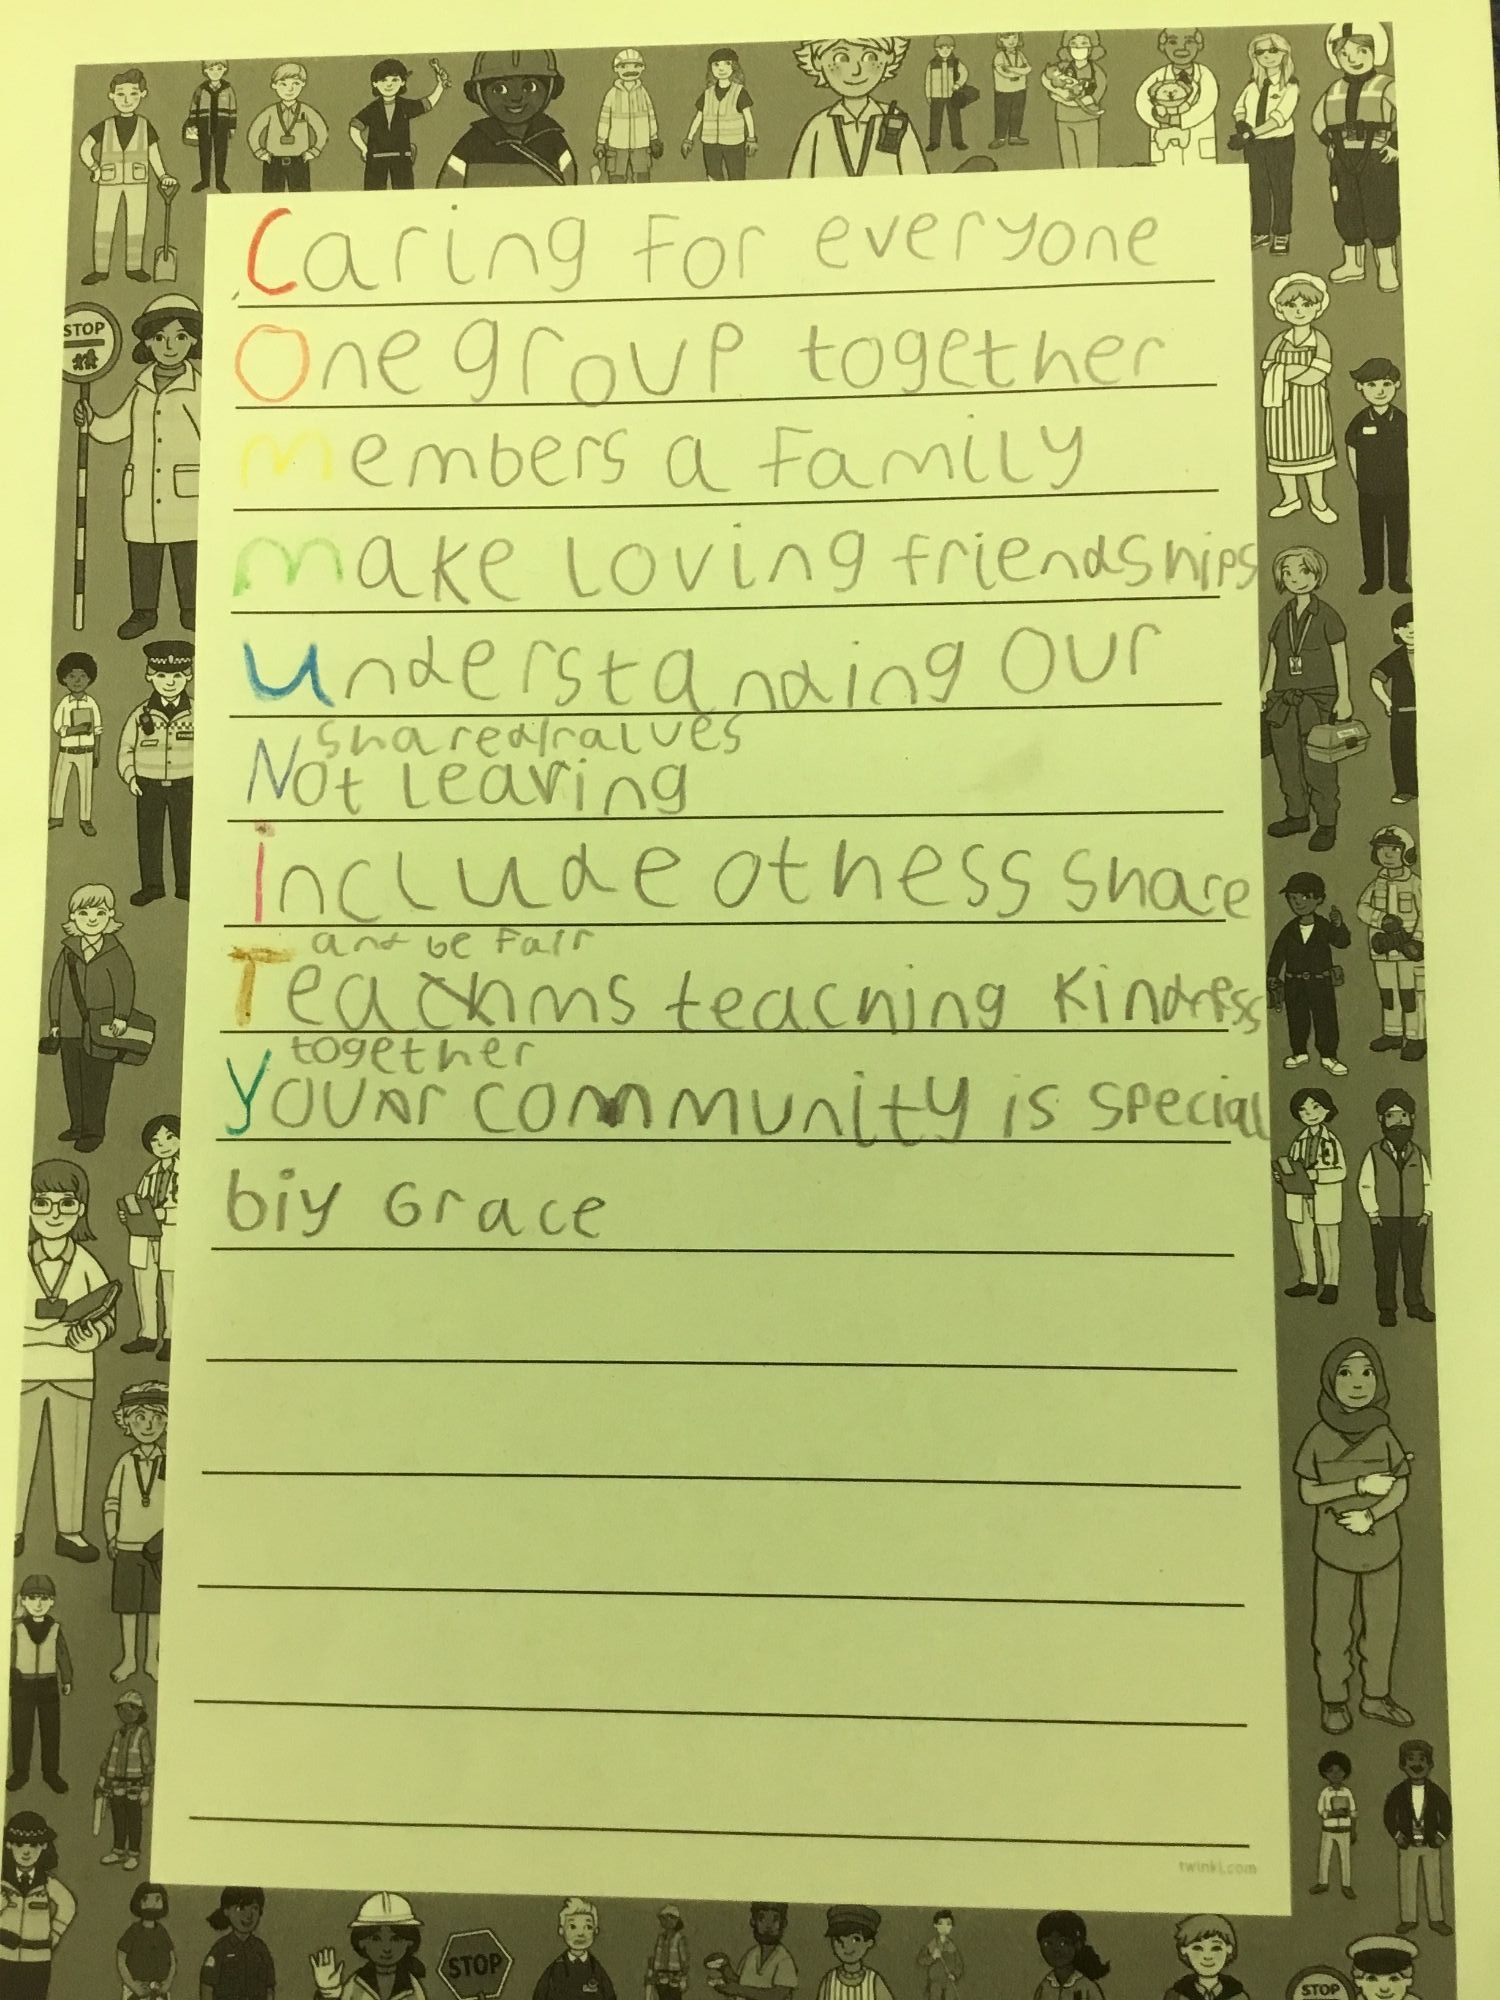 STOP
Caring for everyone
One group together
members a family
make loving friendships
understanding our
shared values
Not leaving
include othess share
and be fair
Teams teaching kindness
together
your community is special
biy Grace
twinkl.com
STOP
STOP